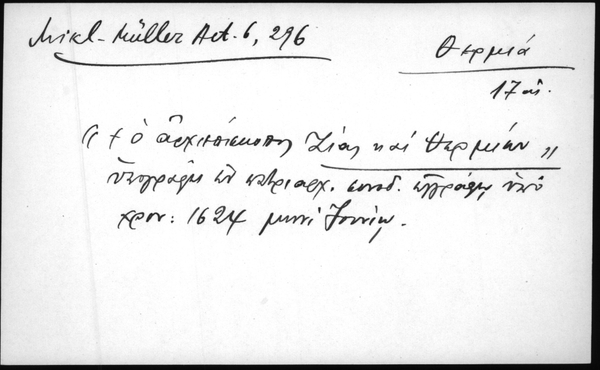 Mikl-Müller Act. 6, 296
Θερμιά
17 αἰ.
(( + ὁ ἀρχιεπίσκοπος Ζίας καὶ Θερμίων ,,
ὑπογράφει ἐν πατριαρχ. συνοδ. ἐγγράφῳ ὑπὸ
χρον: 1624 μηνὶ Ἰουνίῳ.